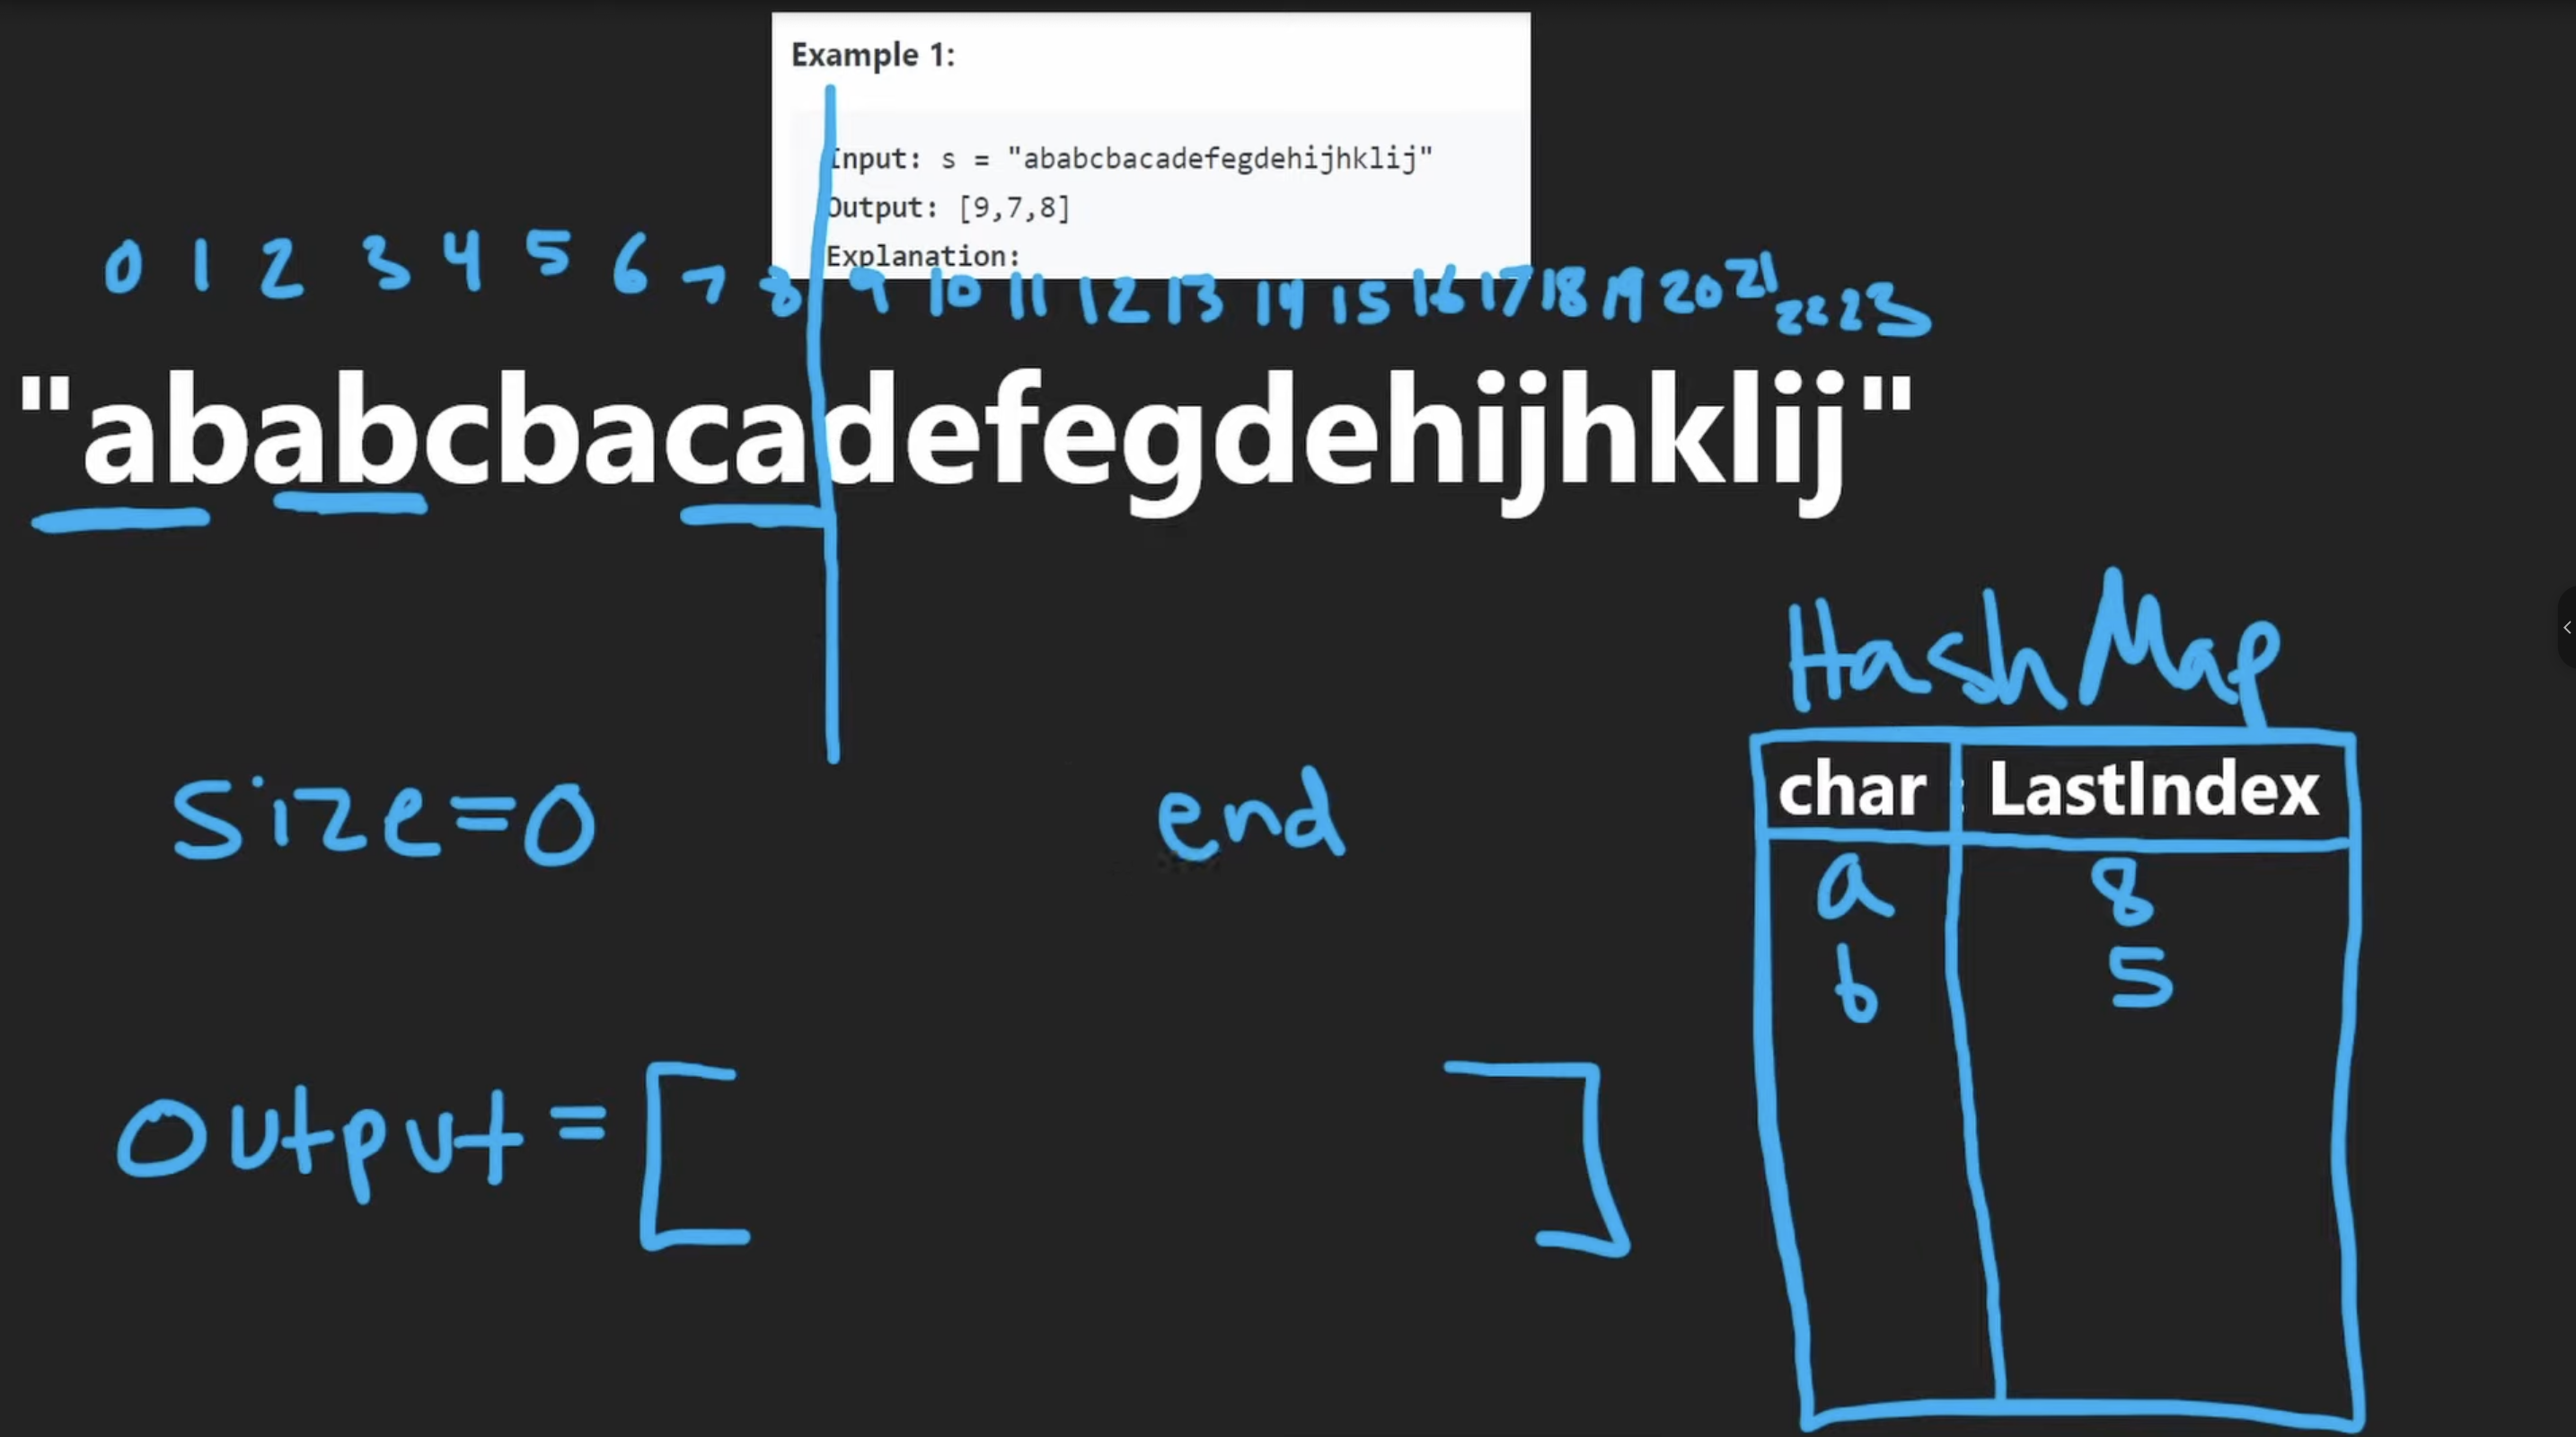 Example 1:
Input: s = "ababcbacadefegdehijhklij"
Output: [9,7,8]
Explanation:
0 1 2 3 4 5 6 7 8 9 10 11 12 13 14 15 16 17 18 19 20 21 22 23
"ababcbacadefegdehijhklij"
HashMap
char : LastIndex
a 8
b 5
size=0 end
output = [ ]